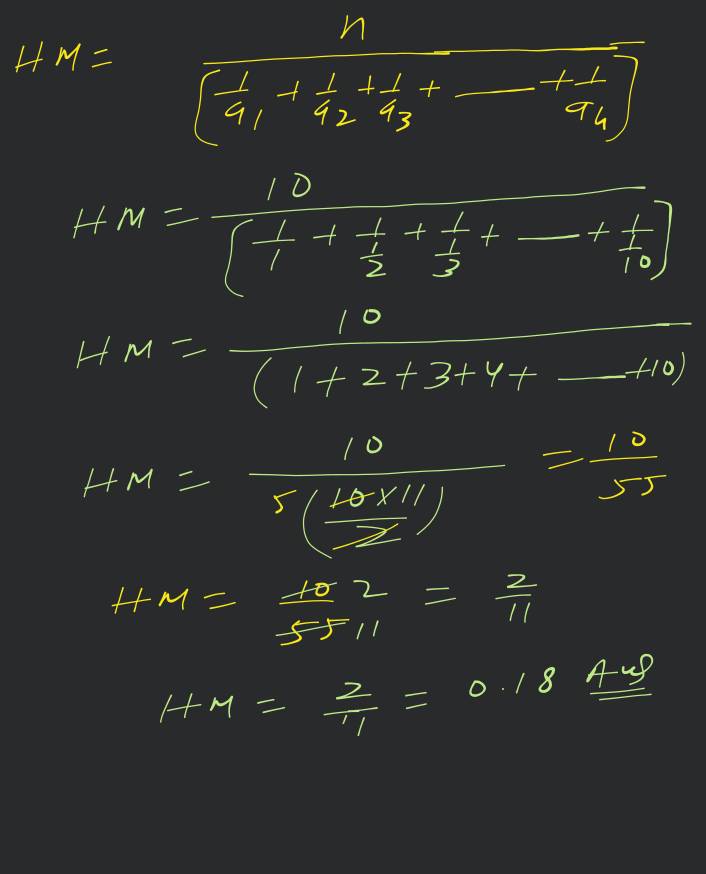 HM = n / [1/a1 + 1/a2 + 1/a3 + — + 1/an]
HM = 10 / [1/1 + 1/(1/2) + 1/(1/3) + — + 1/(1/10)]
HM = 10 / (1+2+3+4+ — +10)
HM = 10 / 5(10×11/2) = 10/55
HM = 10 2 / 55 11 = 2/11
HM = 2/11 = 0.18 Ans